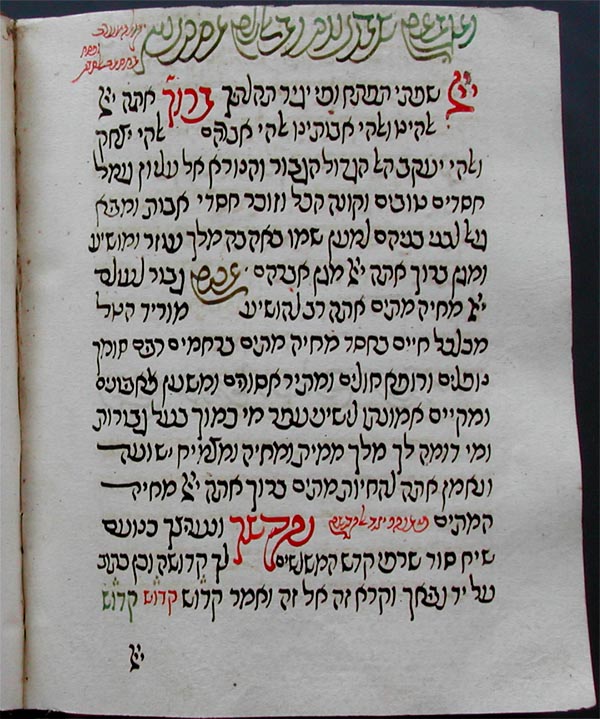 יי' שפתי תפתח ופי יגיד תהלתך ברוך אתה יי'
אלהינו ואלהי אבותינו אלהי אברהם אלהי יצחק
ואלהי יעקב האל הגדול הגבור והנורא אל עליון גומל
חסדים טובים וקונה הכל וזוכר חסדי אבות ומביא
גואל לבני בניהם למען שמו באהבה מלך עוזר ומושיע
ומגן ברוך אתה יי' מגן אברהם אתה גבור לעולם
יי' מחיה מתים אתה רב להושיע מוריד הטל
מכלכל חיים בחסד מחיה מתים ברחמים רבים סומך
נופלים ורופא חולים ומתיר אסורים
ומקיים אמונתו לישיני עפר מי כמוך בעל גבורות
ומי דומה לך מלך ממית ומחיה ומצמיח ישועה
ונאמן אתה להחיות מתים ברוך אתה יי' מחיה
המתים נקדישך ונעריצך כנועם
שיח סוד שרפי קדש המשלשים לך קדושה וכן כתוב
על יד נביאך וקרא זה אל זה ואמר קדוש קדוש קדוש
יי'